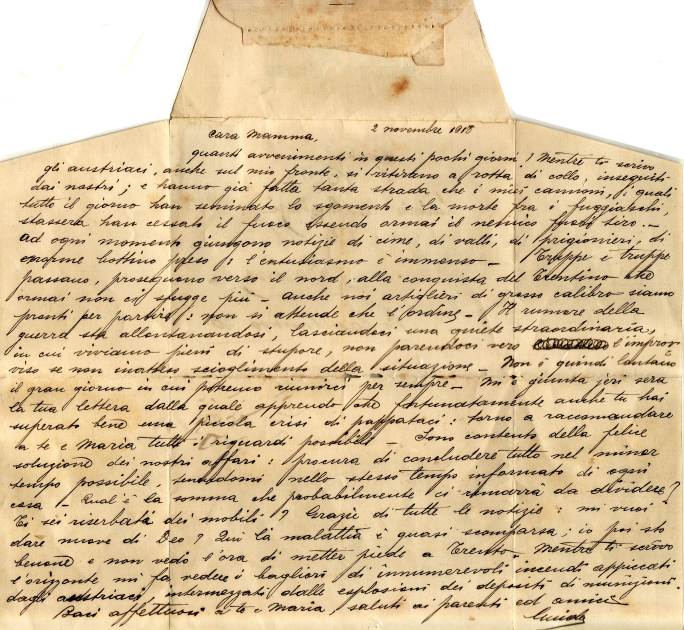 Cara Mamma, 2 novembre 1918
quanti avvenimenti in questi pochi giorni! Mentre ti scrivo
gli austriaci, anche sul mio fronte, si ritirano a rotta di collo, inseguiti
dai nostri; e hanno già fatta tanta strada che i miei cannoni, i quali
tutto il giorno han seminato lo sgomento e la morte fra i fuggiaschi,
stassera han cessato il fuoco essendo ormai il nemico fuori tiro. —
Ad ogni momento giungono notizie di cime, di valli, di prigionieri, di
enorme bottino preso: l'entusiasmo è immenso — Truppe e truppe
passano, proseguono verso il nord, alla conquista del Trentino che
ormai non ci sfugge più — Anche noi artiglieri di grosso calibro siamo
pronti per partire: non si attende che l'ordine — Il rumore della
guerra sta allontanandosi, lasciandoci una quiete straordinaria,
in cui viviamo pieni di stupore, non parendoci vero l'improv
viso se non inatteso scioglimento della situazione — Non è quindi lontano
il gran giorno in cui potremo riunirci per sempre — Mi è giunta jeri sera
la tua lettera dalla quale apprendo che fortunatamente anche tu hai
superato bene una piccola crisi di pappataci: torno a raccomandare
a te e Maria tutti i riguardi possibili — Sono contento della felice
soluzione dei nostri affari: procura di concludere tutto nel minor
tempo possibile tenendomi nello stesso tempo informato di ogni
cosa — Qual'è la somma che probabilmente ci rimarrà da dividere?
Ti sei riserbata dei mobili? Grazie di tutte le notizie: mi vuoi
dare nuove di Deo? Qui la malattia è quasi scomparsa; io poi sto
benone e non vedo l'ora di metter piede a Trento — Mentre ti scrivo
l'orizzonte mi fa vedere i bagliori di innumerevoli incendi appiccati
dagli austriaci, intermezzati dalle esplosioni dei depositi di munizioni.
Baci affettuosi a te e Maria, saluti ai parenti ed amici
Guido